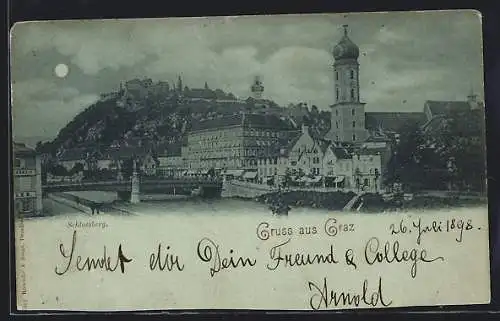 Schlossberg.
Gruss aus Graz
26. Juli 1898.
Sendet dir Dein Freund & College
Arnold